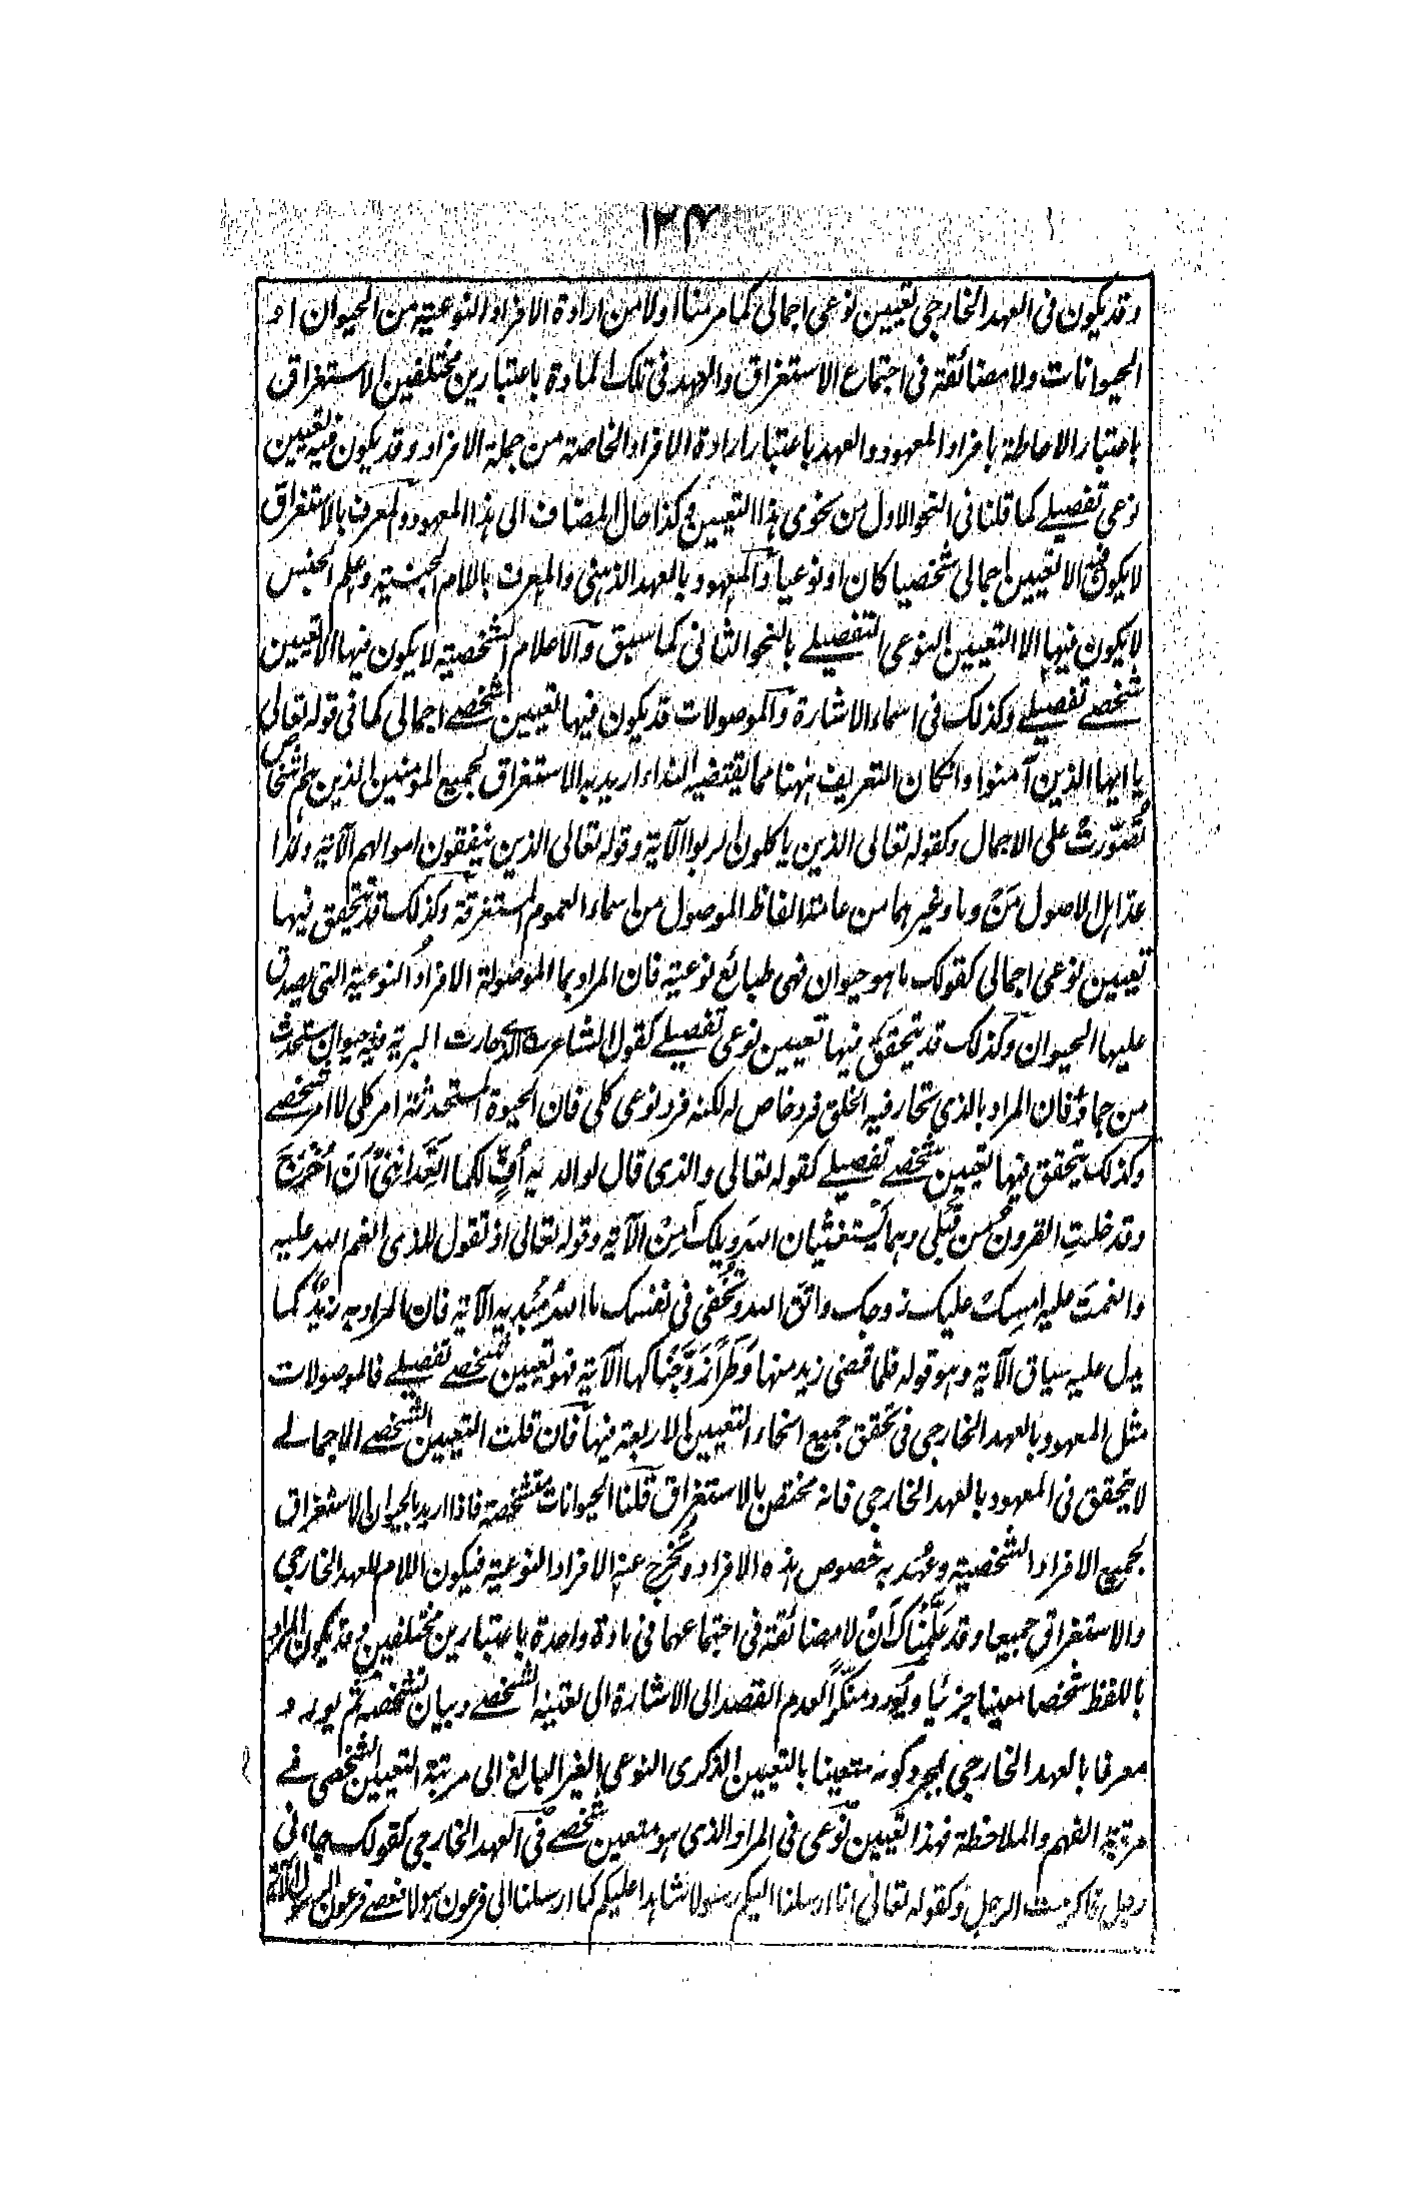 ١٢٤
وقد يكون فى العهد الخارجى تعيين نوعى اجمالى كما مر منا اولا من ارادة الافراد النوعية من الحيوان او
الحيوانات ولا مضائقة فى اجتماع الاستغراق والعهد فى تلك المادة باعتبارين مختلفين الاستغراق
باعتبار الاحاطة بافراد المعهود والعهد باعتبار ارادة الافراد الخاصة من جملة الافراد وقد يكون فيه تعيين
نوعى تفصيلے كما قلنا فى النحو الاول من نحوى هذا التعيين وكذا حال المضاف الى هذا المعهود والمعرف بالاستغراق
لا يكون فيه الا تعيين اجمالى شخصيا كان او نوعيا والمعهود بالعهد الذهنى والمعرف باللام الجنسية وعلم الجنس
لا يكون فيها الا التعيين النوعى التفصيلے بالنحو الثانى كما سبق والاعلام الشخصية لا يكون فيها الا تعيين
شخصے تفصيلے وكذلك فى اسماء الاشارة والموصولات قد يكون فيها تعيين شخصے اجمالى كما فى قوله تعالى
يا ايها الذين آمنوا وان كان التعريف ههنا مما يقتضيه النداء اريد به الاستغراق لجميع المؤمنين الذين هم اشخاص
تُصُوِّرتْ على الاجمال وكقوله تعالى الذين ياكلون الربوا الآية وقوله تعالى الذين ينفقون اموالهم الآية ولذا
عدّ اهل الاصول مَنْ وما وغيرهما من عامة الفاظ الموصول من اسماء العموم المستغرقة وكذلك قد يتحقق فيها
تعيين نوعى اجمالى كقولك ما هو حيوان فهى طبائع نوعية فان المراد بما الموصولة الافراد النوعية التى يصدق
عليها الحيوان وكذلك قد يتحقق فيها تعيين نوعى تفصيلے كقول الشاعر والذى حارت البرية فيه حيوان مستحدث
من جماد فان المراد بالذى تحار فيه الخلق فرد خاص له لكنه فرد نوعى كلى فان الحيوة المستحدثة امر كلى لا امر شخصے
وكذلك يتحقق فيها تعيين شخصے تفصيلے كقوله تعالى والذى قال لوالديه اُفٍّ لكما اَتَعِدانِنِىْ اَنْ اُخْرَجَ
وقد خلتِ القرونُ من قَبْلى وهما يَسْتغيثان الله ويلك اٰمِنْ الآية وقوله تعالى اذ تقول للذى انعم الله عليه
وانعمتَ عليه امسِكْ عليك زوجك واتق الله وتُخفى فى نفسك ما الله مُبْديه الآية فان المراد به زيدٌ كما
يدل عليه سياق الآية وهو قوله فلما قضى زيد منها وَطَرًا زَوَّجْنٰكها الآية فهو تعيين شخصے تفصيلے فالموصولات
مثل المعهود بالعهد الخارجى فى تحقق جميع انحاء التعيين الاربعة فيها فان قلت التعيين الشخصے الاجمالے
لا يتحقق فى المعهود بالعهد الخارجى فانه مختص بالاستغراق قلنا الحيوانات متشخصة فاذا اريد بالحيوان الاستغراق
لجميع الافراد الشخصية وعُهد به خصوص هذه الافراد وتُخرج عنه الافراد النوعية فيكون اللام للعهد الخارجى
والاستغراق جميعا وقد علّمناك اَنْ لا مضائقة فى اجتماعهما فى مادة واحدة باعتبارين مختلفين وقد يكون المراد
باللفظ شخصا معينا جزئيا ويُورد منكّرًا لعدم القصد الى الاشارة الى تعينه الشخصے وبيان تشخصه ثم يورد
معرفا بالعهد الخارجى بمجرد كونه متعينا بالتعيين الذكرى النوعى الغير البالغ الى مرتبة التعيين الشخصى فے
مرتبة الفهم والملاحظة فهذا تعيين نوعى فى المراد الذى هو متعين شخصے فى العهد الخارجى كقولك جاءنى
رجل فاكرمت الرجل وكقوله تعالى انا ارسلنا اليكم رسولا شاهدا عليكم كما ارسلنا الى فرعون رسولا فعصے فرعون الرسول الآية